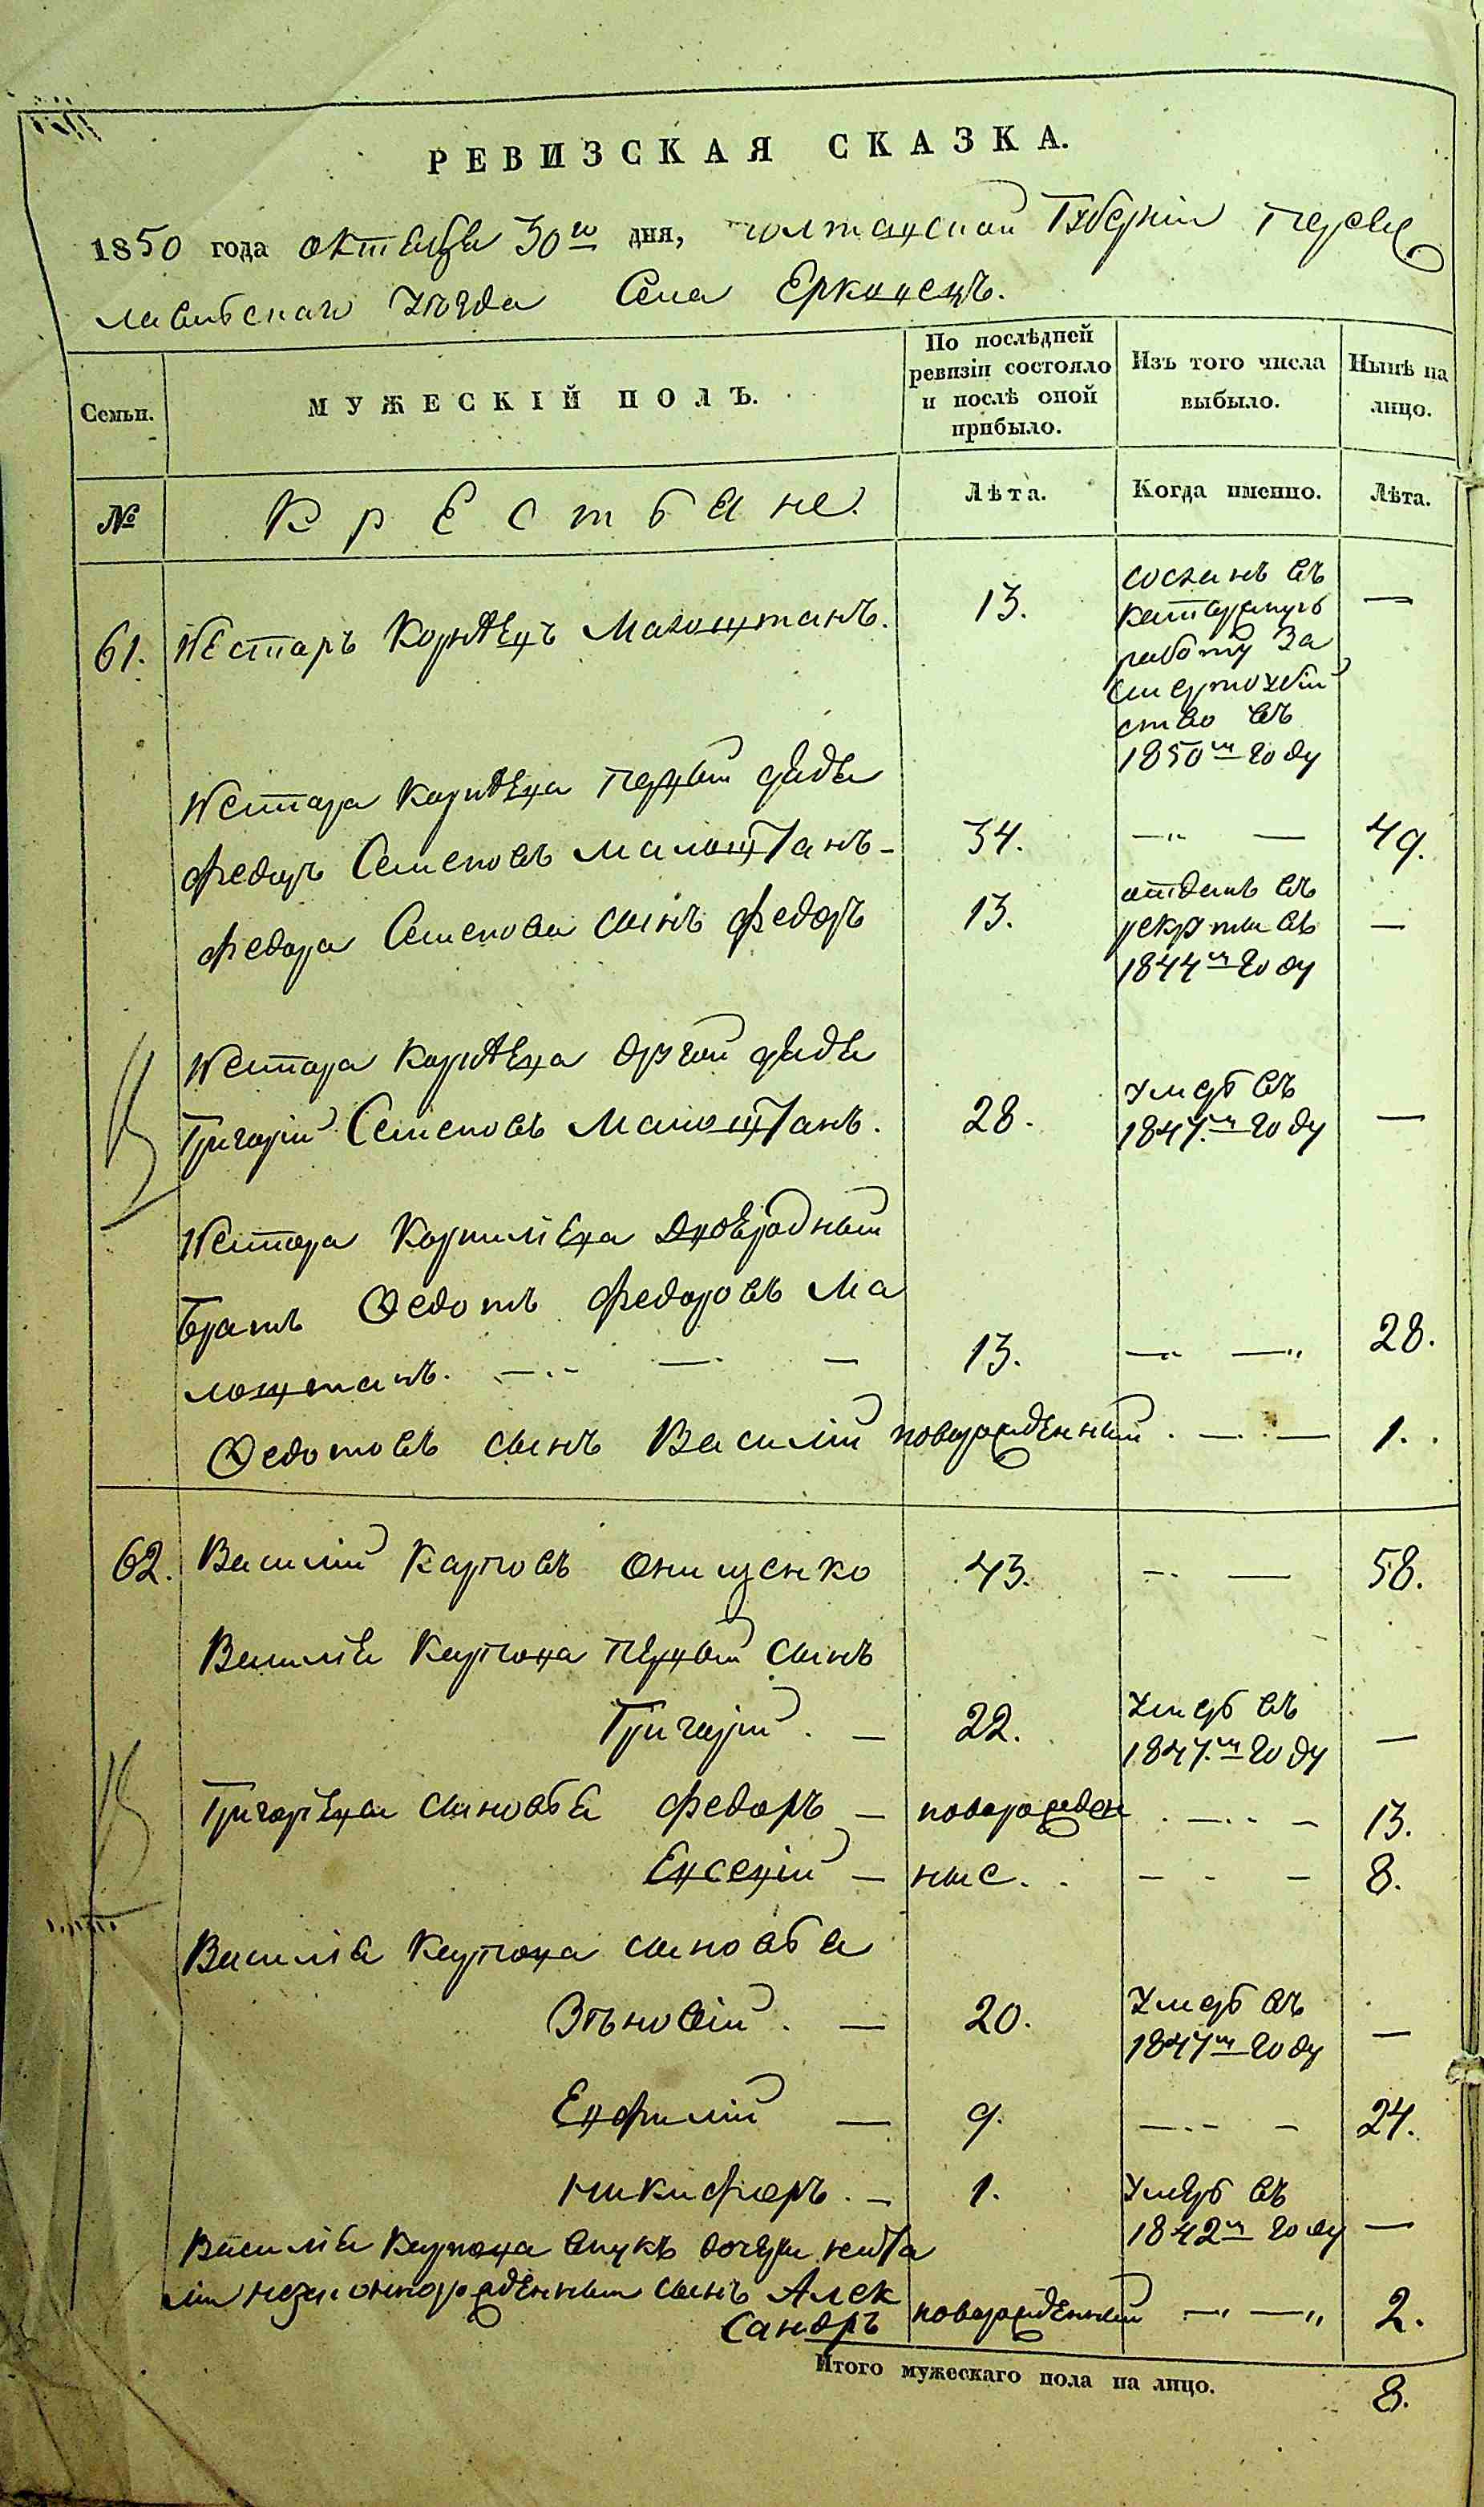 РЕВИЗСКАЯ СКАЗКА.
1850 года октября 30го дня, Полтавской Губерніи Перея
лавскаго уѣзда Села Ерковецъ.
Семьи.
МУЖЕСКІЙ ПОЛЪ.
По послѣдней ревизіи состояло и послѣ оной прибыло.
Изъ того числа выбыло.
Нынѣ на лицо.
№
Крестьяне.
Лѣта.
Когда именно.
Лѣта.
61. Несторъ Корнѣевъ Малоштанъ. 13. сосланъ въ —
каторжную
работу за
смертоубій
ство въ
1850м году
Нестора Корнѣева первый дядя
Федоръ Семеновъ Малоштанъ - 34. —„ — 49.
Федора Семенова сынъ Федоръ 13. отданъ въ —
рекруты въ
1844м году
Нестора Корнѣева другой дядя
Григорій Семеновъ Малоштанъ. 28. умеръ въ —
1847.м году
Нестора двоюродный
братъ Федотъ Федоровъ Ма
лоштанъ. — — — 13. — —„ 28.
Федотовъ сынъ Василій новорожденный . — — 1.
62. Василій Карповъ Онищенко 43. — — 58.
Василія Карпова первый сынъ
Григорій. — 22. умеръ въ —
1847.м году
Григорьева сыновья Федоръ — новорожден — — 13.
Евсевій — ные. — - — 8.
Василія Карпова сыновья
Зѣновій. — 20. умеръ въ —
1847м году
Евфимій — 9. — - 24.
Никифоръ. — 1. умеръ въ
1842м году —
Василія Карпова внукъ дочери Ната
ліи незаконнорожденный сынъ Алек
сандръ новорожденный —„ —„ 2.
Итого мужескаго пола на лицо. 8.